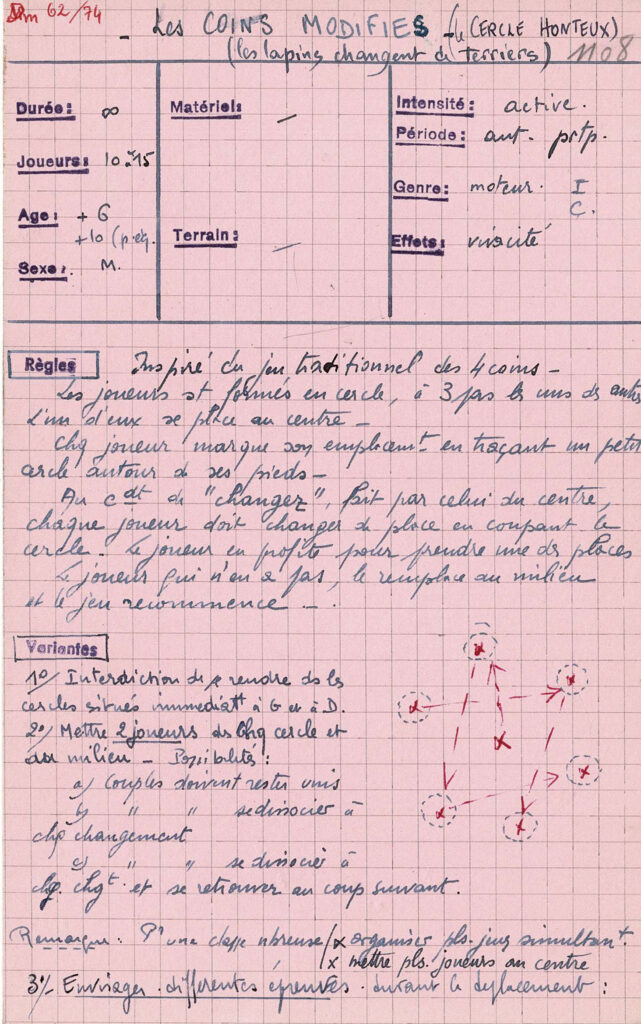 Dm 62/74
- Les COINS MODIFIES - (le CERCLE HONTEUX)
(les lapins changent de terriers) 1108
Durée: ∞
Joueurs: 10 à 15
Age: + 6
+10 (p.eq.
Sexe: M.
Matériel: -
Terrain: -
Intensité: active.
Période: aut. prtp.
Genre: moteur. I
C.
Effets: vivacité
Règles Inspiré du jeu traditionnel des 4 coins -
Les joueurs st formés en cercle, à 3 pas les uns des autres
L'un d'eux se place au centre -
Chq joueur marque son emplacemt en traçant un petit
cercle autour de ses pieds -
Au cdt de "changez", fait par celui du centre,
chaque joueur doit changer de place en coupant le
cercle. Le joueur en profite pour prendre une des places
Le joueur qui n'en a pas, le remplace au milieu
et le jeu recommence - .
Variantes
1°/ Interdiction de prendre ds les
cercles situés immédiatt à G et à D.
2°/ Mettre 2 joueurs ds chq cercle et
au milieu - Possibilités :
a) couples doivent rester unis
b) " " se dissocier à
chq changement
c) " " se dissocier à
chq. chgt. et se retrouver au coup suivant.
Remarque : Pr une classe nbreuse / x organiser pls. jeux simultant.
/ x mettre pls. joueurs au centre
3°/- Envisager différentes épreuves durant le déplacement :